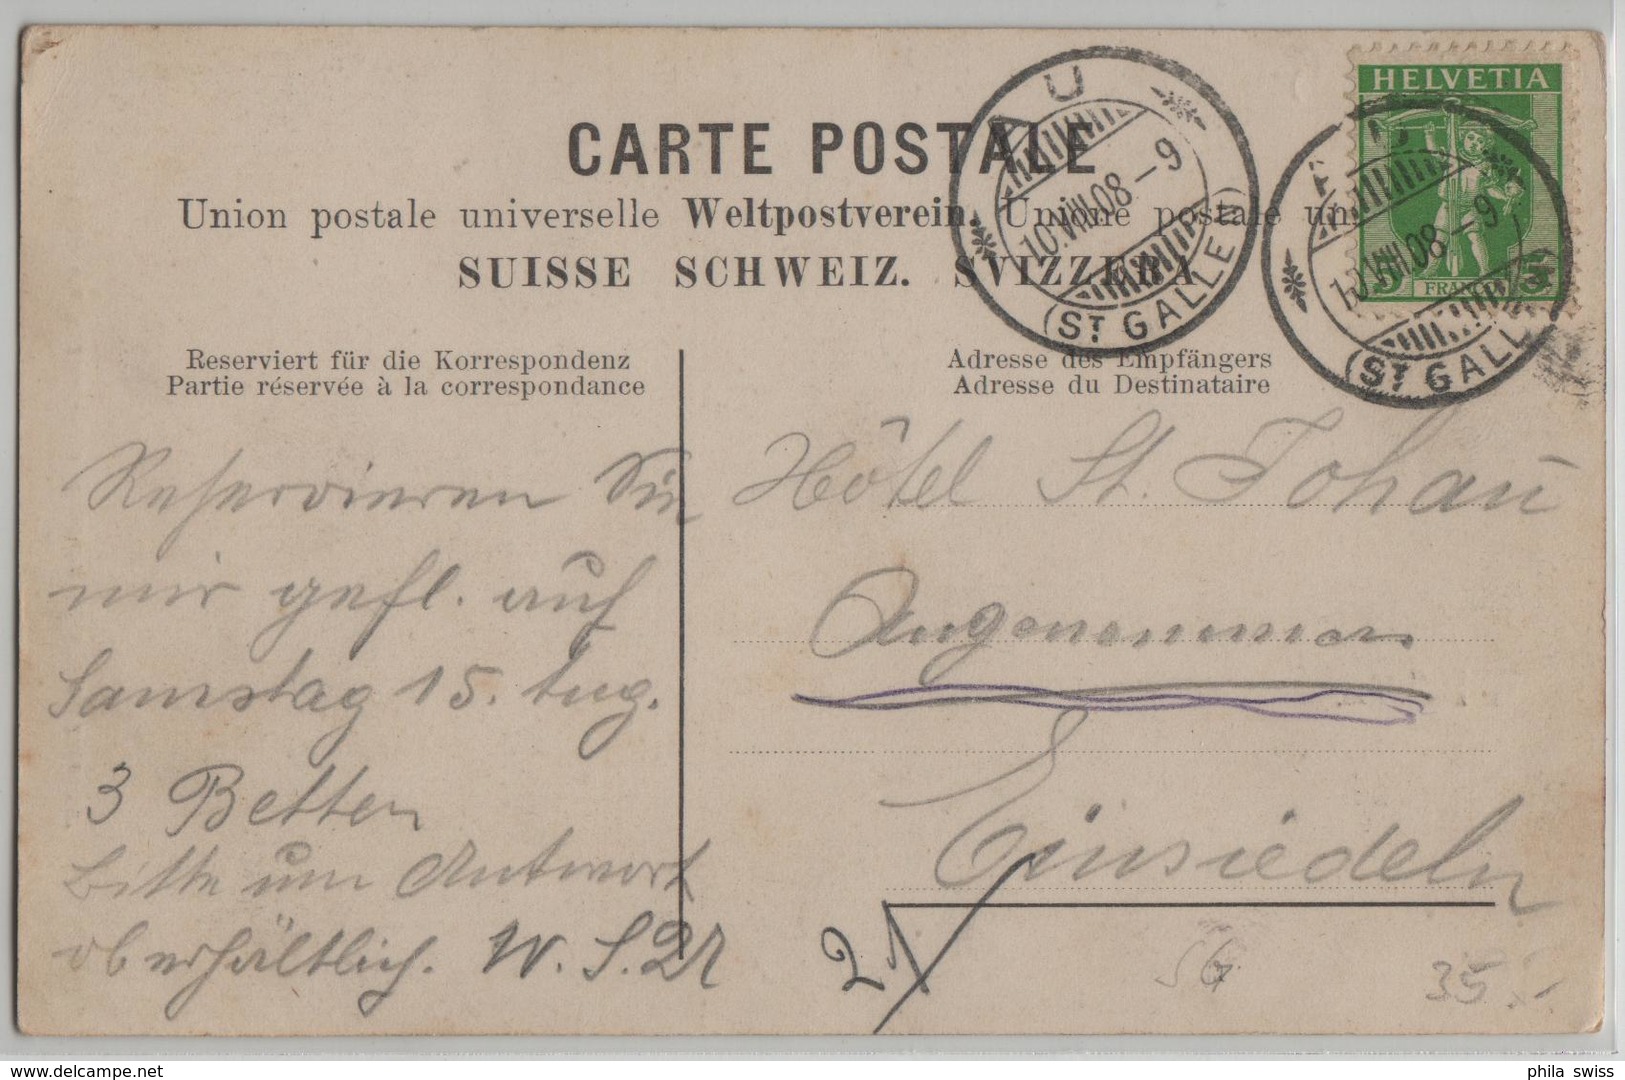 HELVETIA
5 FRANCO 5
AU
10.VIII.08–9
(ST GALLEN)
AU
10.VIII.08–9
(ST GALL
CARTE POSTALE
Union postale universelle Weltpostverein. Unione postale un
SUISSE SCHWEIZ. SVIZZERA
Reserviert für die Korrespondenz
Partie réservée à la correspondance
Adresse des Empfängers
Adresse du Destinataire
Reservieren Sie
mir gefl. auf
Samstag 15. Aug.
3 Betten
bitte um Antwort
ob erhältlich. W. S.
Hôtel St. Johañ
Angenommen
Einsiedeln
21
SG
35.-
delcampe.net
phila swiss